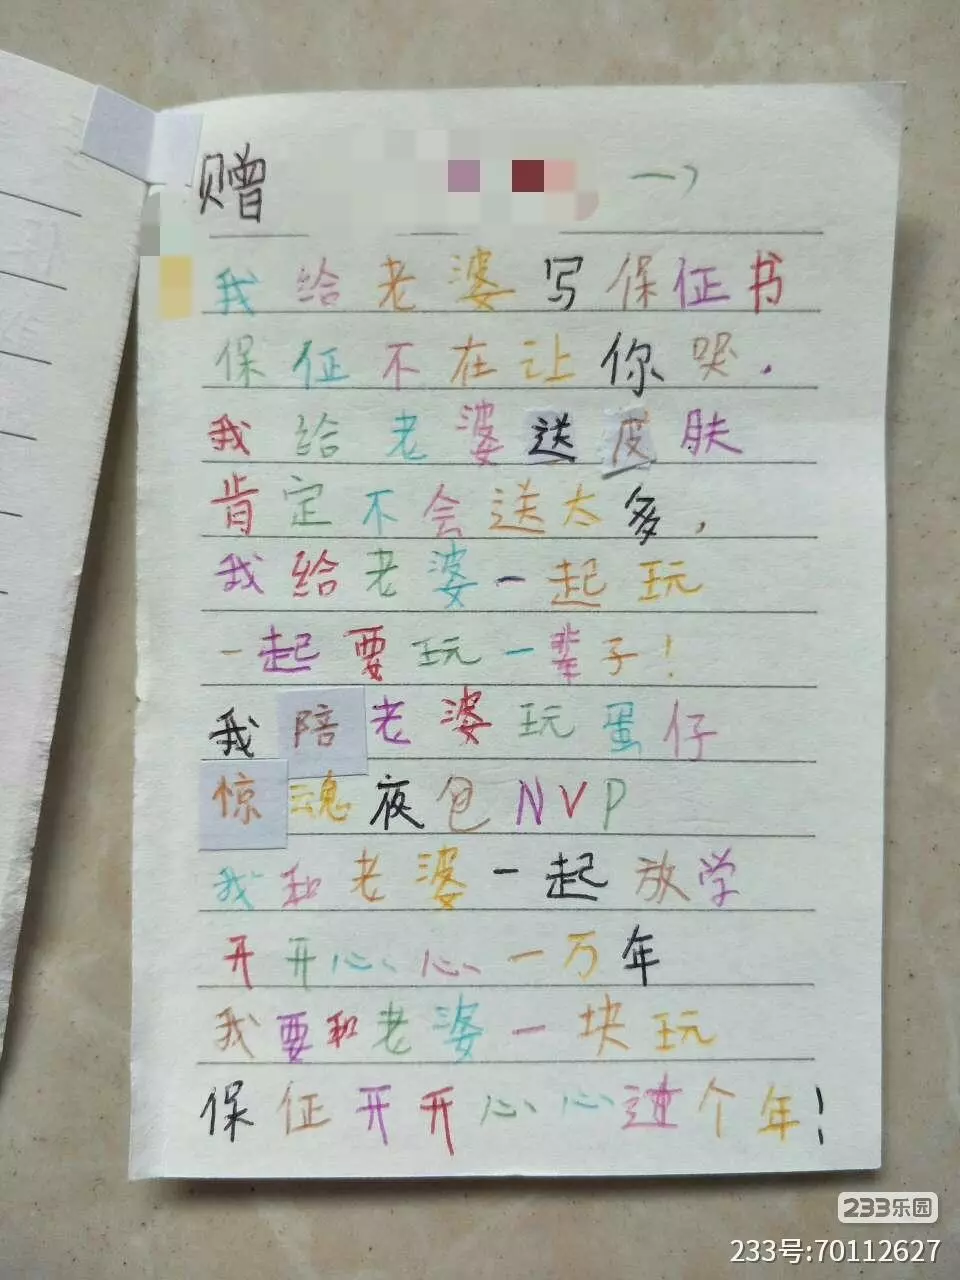 赠
我给老婆写保证书
保证不在让你哭.
我给老婆送皮肤
肯定不会送太多,
我给老婆一起玩
一起要玩一辈子!
我陪老婆玩蛋仔
惊魂夜包NVP
我和老婆一起放学
开开心心一万年
我要和老婆一块玩
保证开开心心过个年!
233乐园
233号:70112627